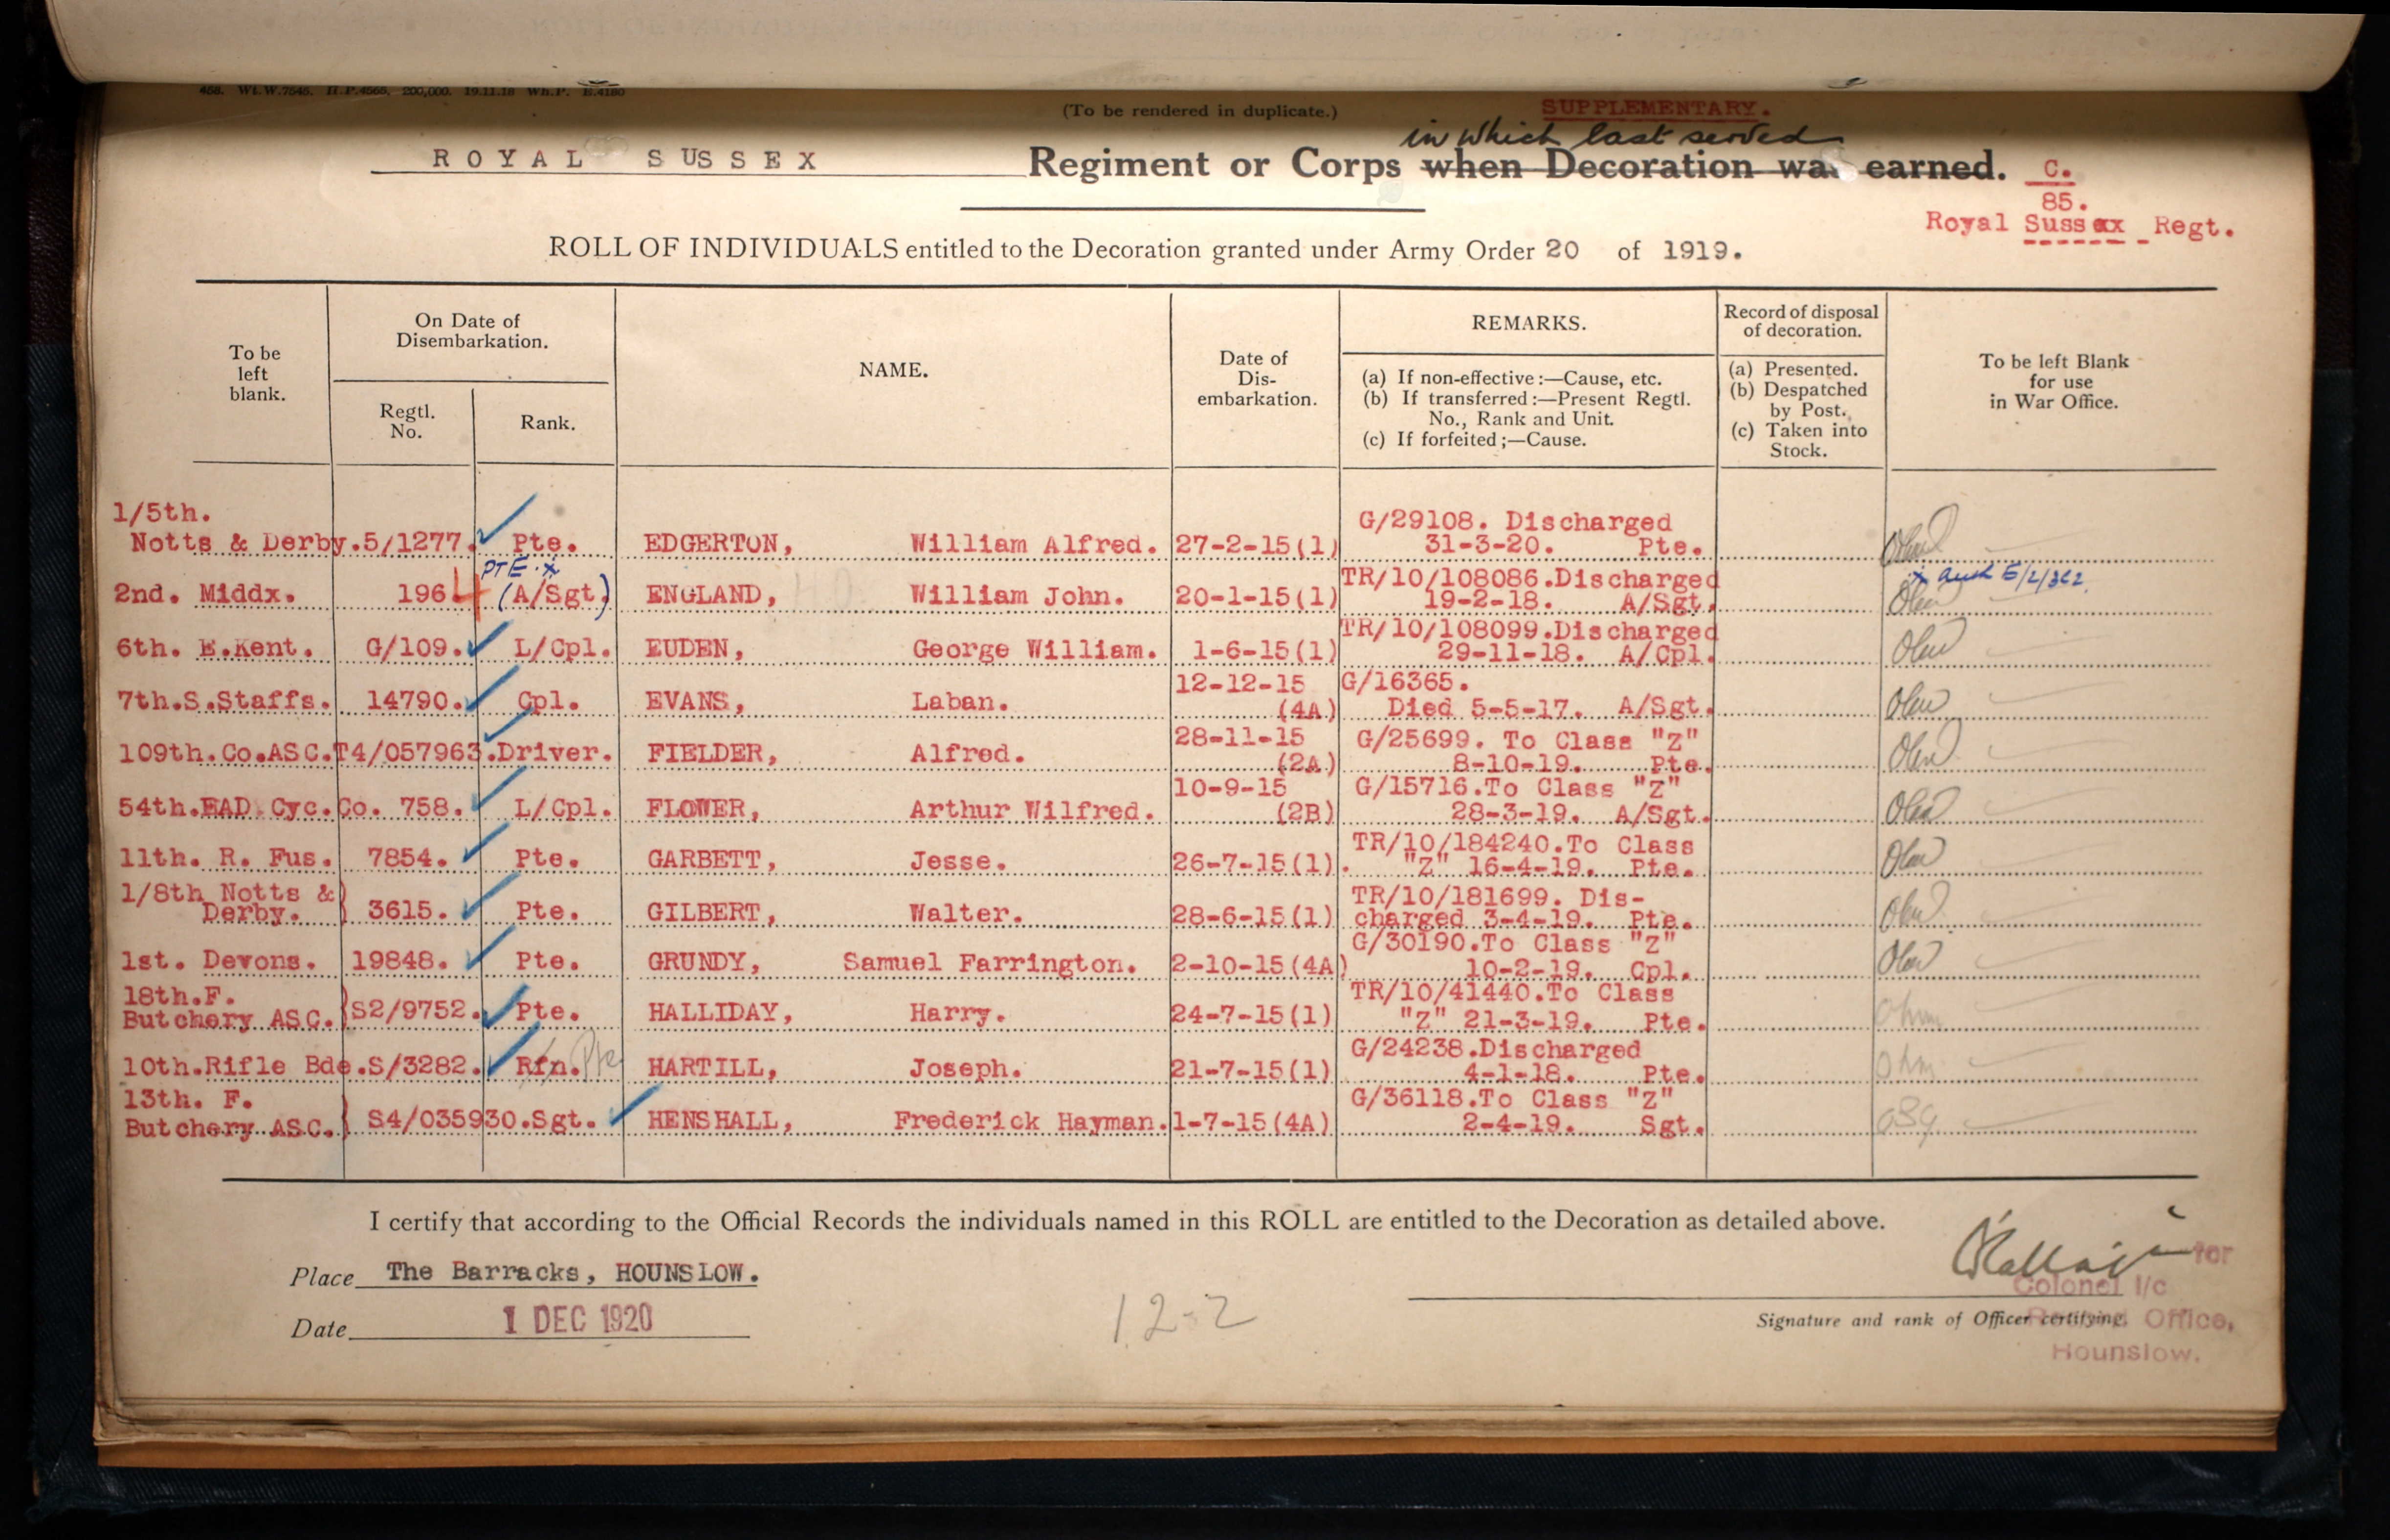 468. Wt.W.7546. H.P.4565, 200,000. 19.11.18 Wh.P. E.4180
(To be rendered in duplicate.)
SUPPLEMENTARY.
in which last served
ROYAL SUSSEX Regiment or Corps when Decoration was earned.
C.
85.
Royal Sussex Regt.
ROLL OF INDIVIDUALS entitled to the Decoration granted under Army Order 20 of 1919.
To be left blank.
On Date of Disembarkation.
Regtl. No.
Rank.
NAME.
Date of Dis-embarkation.
REMARKS.
(a) If non-effective:—Cause, etc.
(b) If transferred:—Present Regtl. No., Rank and Unit.
(c) If forfeited;—Cause.
Record of disposal of decoration.
(a) Presented.
(b) Despatched by Post.
(c) Taken into Stock.
To be left Blank for use in War Office.
1/5th. Notts & Derby. 5/1277. Pte. EDGERTON, William Alfred. 27-2-15(1) G/29108. Discharged 31-3-20. Pte.
PTE. x
2nd. Middx. 1964 (A/Sgt.) ENGLAND, William John. 20-1-15(1) TR/10/108086.Discharged 19-2-18. A/Sgt.
6th. E.Kent. G/109. L/Cpl. EUDEN, George William. 1-6-15(1) TR/10/108099.Discharged 29-11-18. A/Cpl.
7th.S.Staffs. 14790. Cpl. EVANS, Laban. 12-12-15 (4A) G/16365. Died 5-5-17. A/Sgt.
109th.Co.ASC. T4/057963. Driver. FIELDER, Alfred. 28-11-15 (2A) G/25699. To Class "Z" 8-10-19. Pte.
54th.EAD Cyc.Co. 758. L/Cpl. FLOWER, Arthur Wilfred. 10-9-15 (2B) G/15716.To Class "Z" 28-3-19. A/Sgt.
11th. R. Fus. 7854. Pte. GARBETT, Jesse. 26-7-15(1). TR/10/184240.To Class "Z" 16-4-19. Pte.
1/8th Notts & Derby. 3615. Pte. GILBERT, Walter. 28-6-15(1) TR/10/181699. Dis-charged 3-4-19. Pte.
1st. Devons. 19848. Pte. GRUNDY, Samuel Farrington. 2-10-15(4A) G/30190.To Class "Z" 10-2-19. Cpl.
18th.F. Butchery ASC. S2/9752. Pte. HALLIDAY, Harry. 24-7-15(1) TR/10/41440.To Class "Z" 21-3-19. Pte.
10th.Rifle Bde. S/3282. Rfn. Pte HARTILL, Joseph. 21-7-15(1) G/24238.Discharged 4-1-18. Pte.
13th. F. Butchery ASC. S4/035930. Sgt. HENSHALL, Frederick Hayman. 1-7-15(4A) G/36118.To Class "Z" 2-4-19. Sgt.
I certify that according to the Official Records the individuals named in this ROLL are entitled to the Decoration as detailed above.
Place The Barracks, HOUNSLOW.
Date 1 DEC 1920
12-2
for
Colonel I/c
Record Office,
Hounslow.
Signature and rank of Officer certifying.